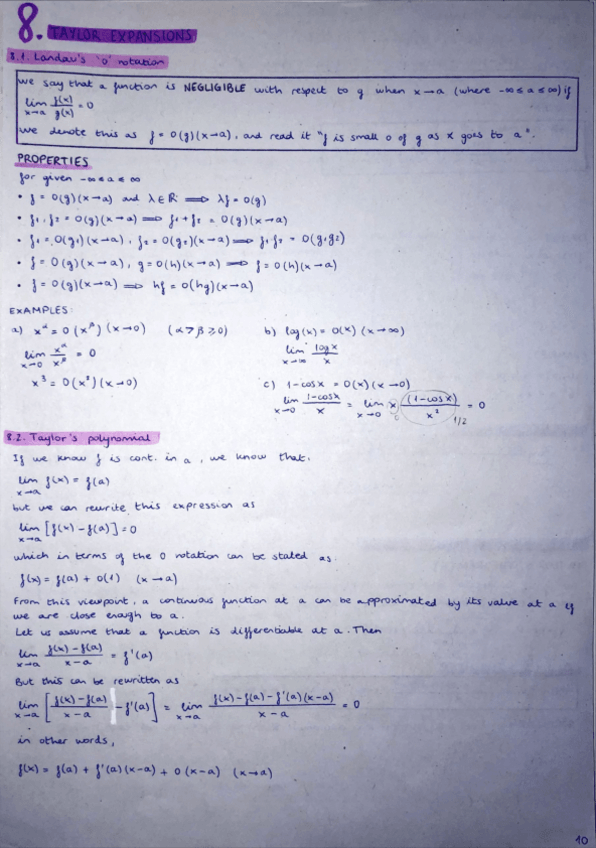 8. TAYLOR EXPANSIONS
8.1. Landau's 'o' notation
We say that a function is NEGLIGIBLE with respect to g when x→a (where -∞≤a≤∞) if
lim x→a f(x)/g(x) = 0
We denote this as f = o(g)(x→a), and read it "f is small o of g as x goes to a".
PROPERTIES
for given -∞≤a≤∞
• f = o(g)(x→a) and λ∈ℝ ⟹ λf = o(g)
• f₁, f₂ = o(g)(x→a) ⟹ f₁+f₂ = o(g)(x→a)
• f₁ = o(g₁)(x→a), f₂ = o(g₂)(x→a) ⟹ f₁f₂ = o(g₁g₂)
• f = o(g)(x→a), g = o(h)(x→a) ⟹ f = o(h)(x→a)
• f = o(g)(x→a) ⟹ hf = o(hg)(x→a)
EXAMPLES:
a) x^α = o(x^β)(x→0) (α>β≥0)
lim x→0 x^α/x^β = 0
x³ = o(x²)(x→0)
b) log(x) = o(x) (x→∞)
lim x→∞ log x/x
c) 1-cosx = o(x)(x→0)
lim x→0 1-cosx/x = lim x→0 x (1-cosx)/x² = 0
0 1/2
8.2. Taylor's polynomial
If we know f is cont. in a, we know that:
lim x→a f(x) = f(a)
but we can rewrite this expression as
lim x→a [f(x)-f(a)] = 0
which in terms of the o notation can be stated as:
f(x) = f(a) + o(1) (x→a)
From this viewpoint, a continuous function at a can be approximated by its value at a if
we are close enough to a.
Let us assume that a function is differentiable at a. Then
lim x→a f(x)-f(a)/x-a = f'(a)
But this can be rewritten as
lim x→a [f(x)-f(a)/x-a - f'(a)] = lim x→a f(x)-f(a)-f'(a)(x-a)/x-a = 0
in other words,
f(x) = f(a) + f'(a)(x-a) + o(x-a) (x→a)
10